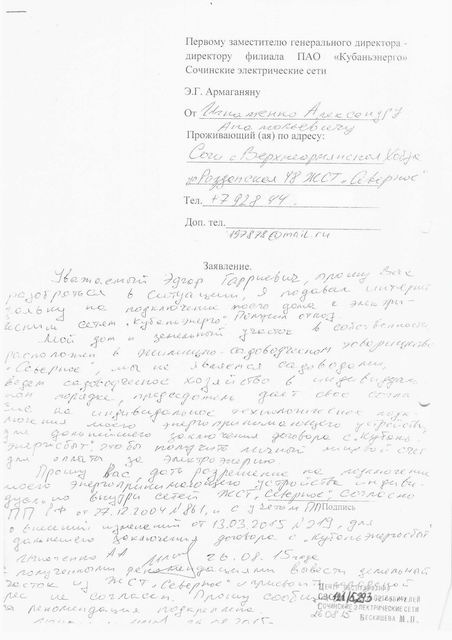 Первому заместителю генерального директора -
директору филиала ПАО «Кубаньэнерго»
Сочинские электрические сети
Э.Г. Армаганяну
От Игнатенко Александр
Анатольевичу
Проживающий (ая) по адресу:
Сочи с Верхнеармянская Хобза
ул Разданская 48 ЖСТ "Северное"
Тел. +7 928 44
Доп. тел.
197878@mail.ru
Заявление.
Уважаемый Эдгар Гарриевич, прошу Вас
разобраться в ситуации, я подавал
на подключение моего дома к электри-
ческим сетям "Кубаньэнерго" Получил отказ.
Мой дом и земельный участок в собственности
расположен в жилищно-садоводческом товариществе
"Северное", мы не являемся садоводами,
ведем садоводческое хозяйство в индивидуаль-
ном порядке, председатель дает свое согла-
сие на индивидуальное технологическое подк-
лючения моего энергопринимающего устройства,
для дальнейшего заключения договора с "Кубань-
энергосбыт" чтобы получить личный лицевой счет
для оплаты за электроэнергию
Прошу Вас дать разрешение на подключение
моего энергопринимающего устройства индиви-
дуально внутри сетей ЖСТ "Северное", согласно
ПП РФ от 27.12.2004 №861, и с учетом ПП Подпись
о внесений изменений от 13.03.2015 №219, для
дальнейшего заключения договора с "Кубаньэнергосбыт
АА 26.08.15 года
полученными рекомендациями вывести земельный
участок из ЖСТ "Северное"
не согласен. Прошу
рекомендация
СОЧИНСКИЕ ЭЛЕКТРИЧЕСКИЕ СЕТИ